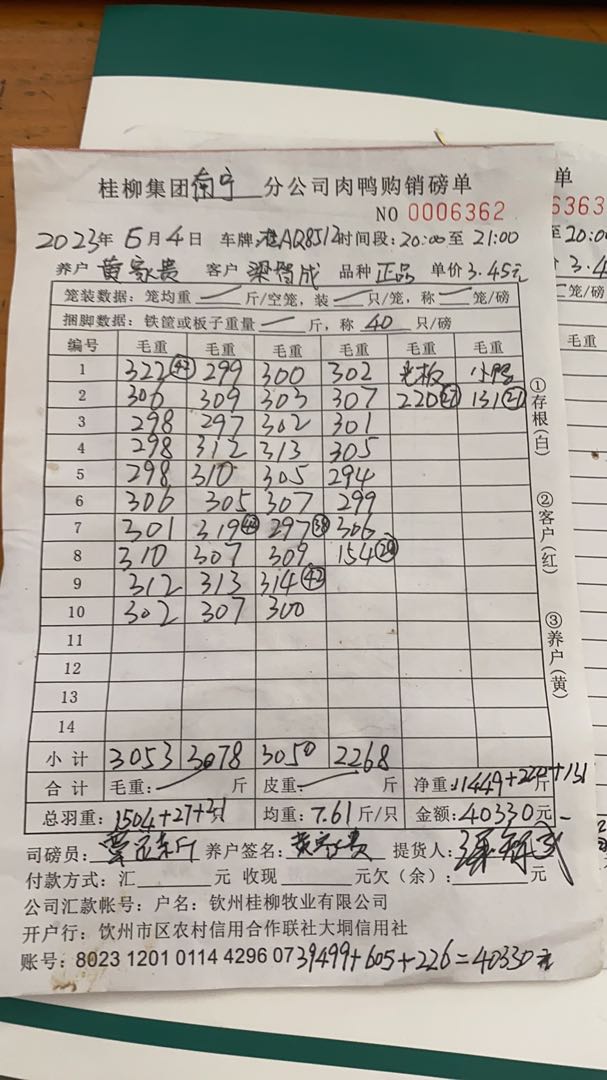 桂柳集团南宁分公司肉鸭购销磅单
NO 0006362
2023年6月4日 车牌 桂AQ8512 时间段: 20:00至 21:00
养户 黄家贵 客户 梁智成 品种 正品 单价 3.45元
笼装数据: 笼均重 — 斤/空笼, 装 — 只/笼, 称 — 笼/磅
捆脚数据: 铁筐或板子重量 — 斤, 称 40 只/磅
编号 毛重 毛重 毛重 毛重 毛重 毛重
1 322 299 300 302 光板 小鸭
2 306 309 303 307 220 131
3 298 297 302 301
4 298 312 313 305
5 298 310 305 294
6 306 305 307 299
7 301 319 297 38 306
8 310 307 309 154
9 312 313 314 42
10 302 307 300
11
12
13
14
小计 3053 3078 3050 2268
合计 毛重: 斤 皮重: 斤 净重: 11449+220+131 斤
总羽重: 1504+27+21 均重: 7.61 斤/只 金额: 40330元
司磅员: 养户签名: 黄家贵 提货人:
付款方式: 汇 元 收现 元欠(余): 元
公司汇款帐号: 户名: 钦州桂柳牧业有限公司
开户行: 钦州市区农村信用合作联社大垌信用社
账号: 8023 1201 0114 4296 07 39499+605+226=40330元
①存根(白)
②客户(红)
③养户(黄)
单
6363
至 20:0
3.4
笼/磅
毛重